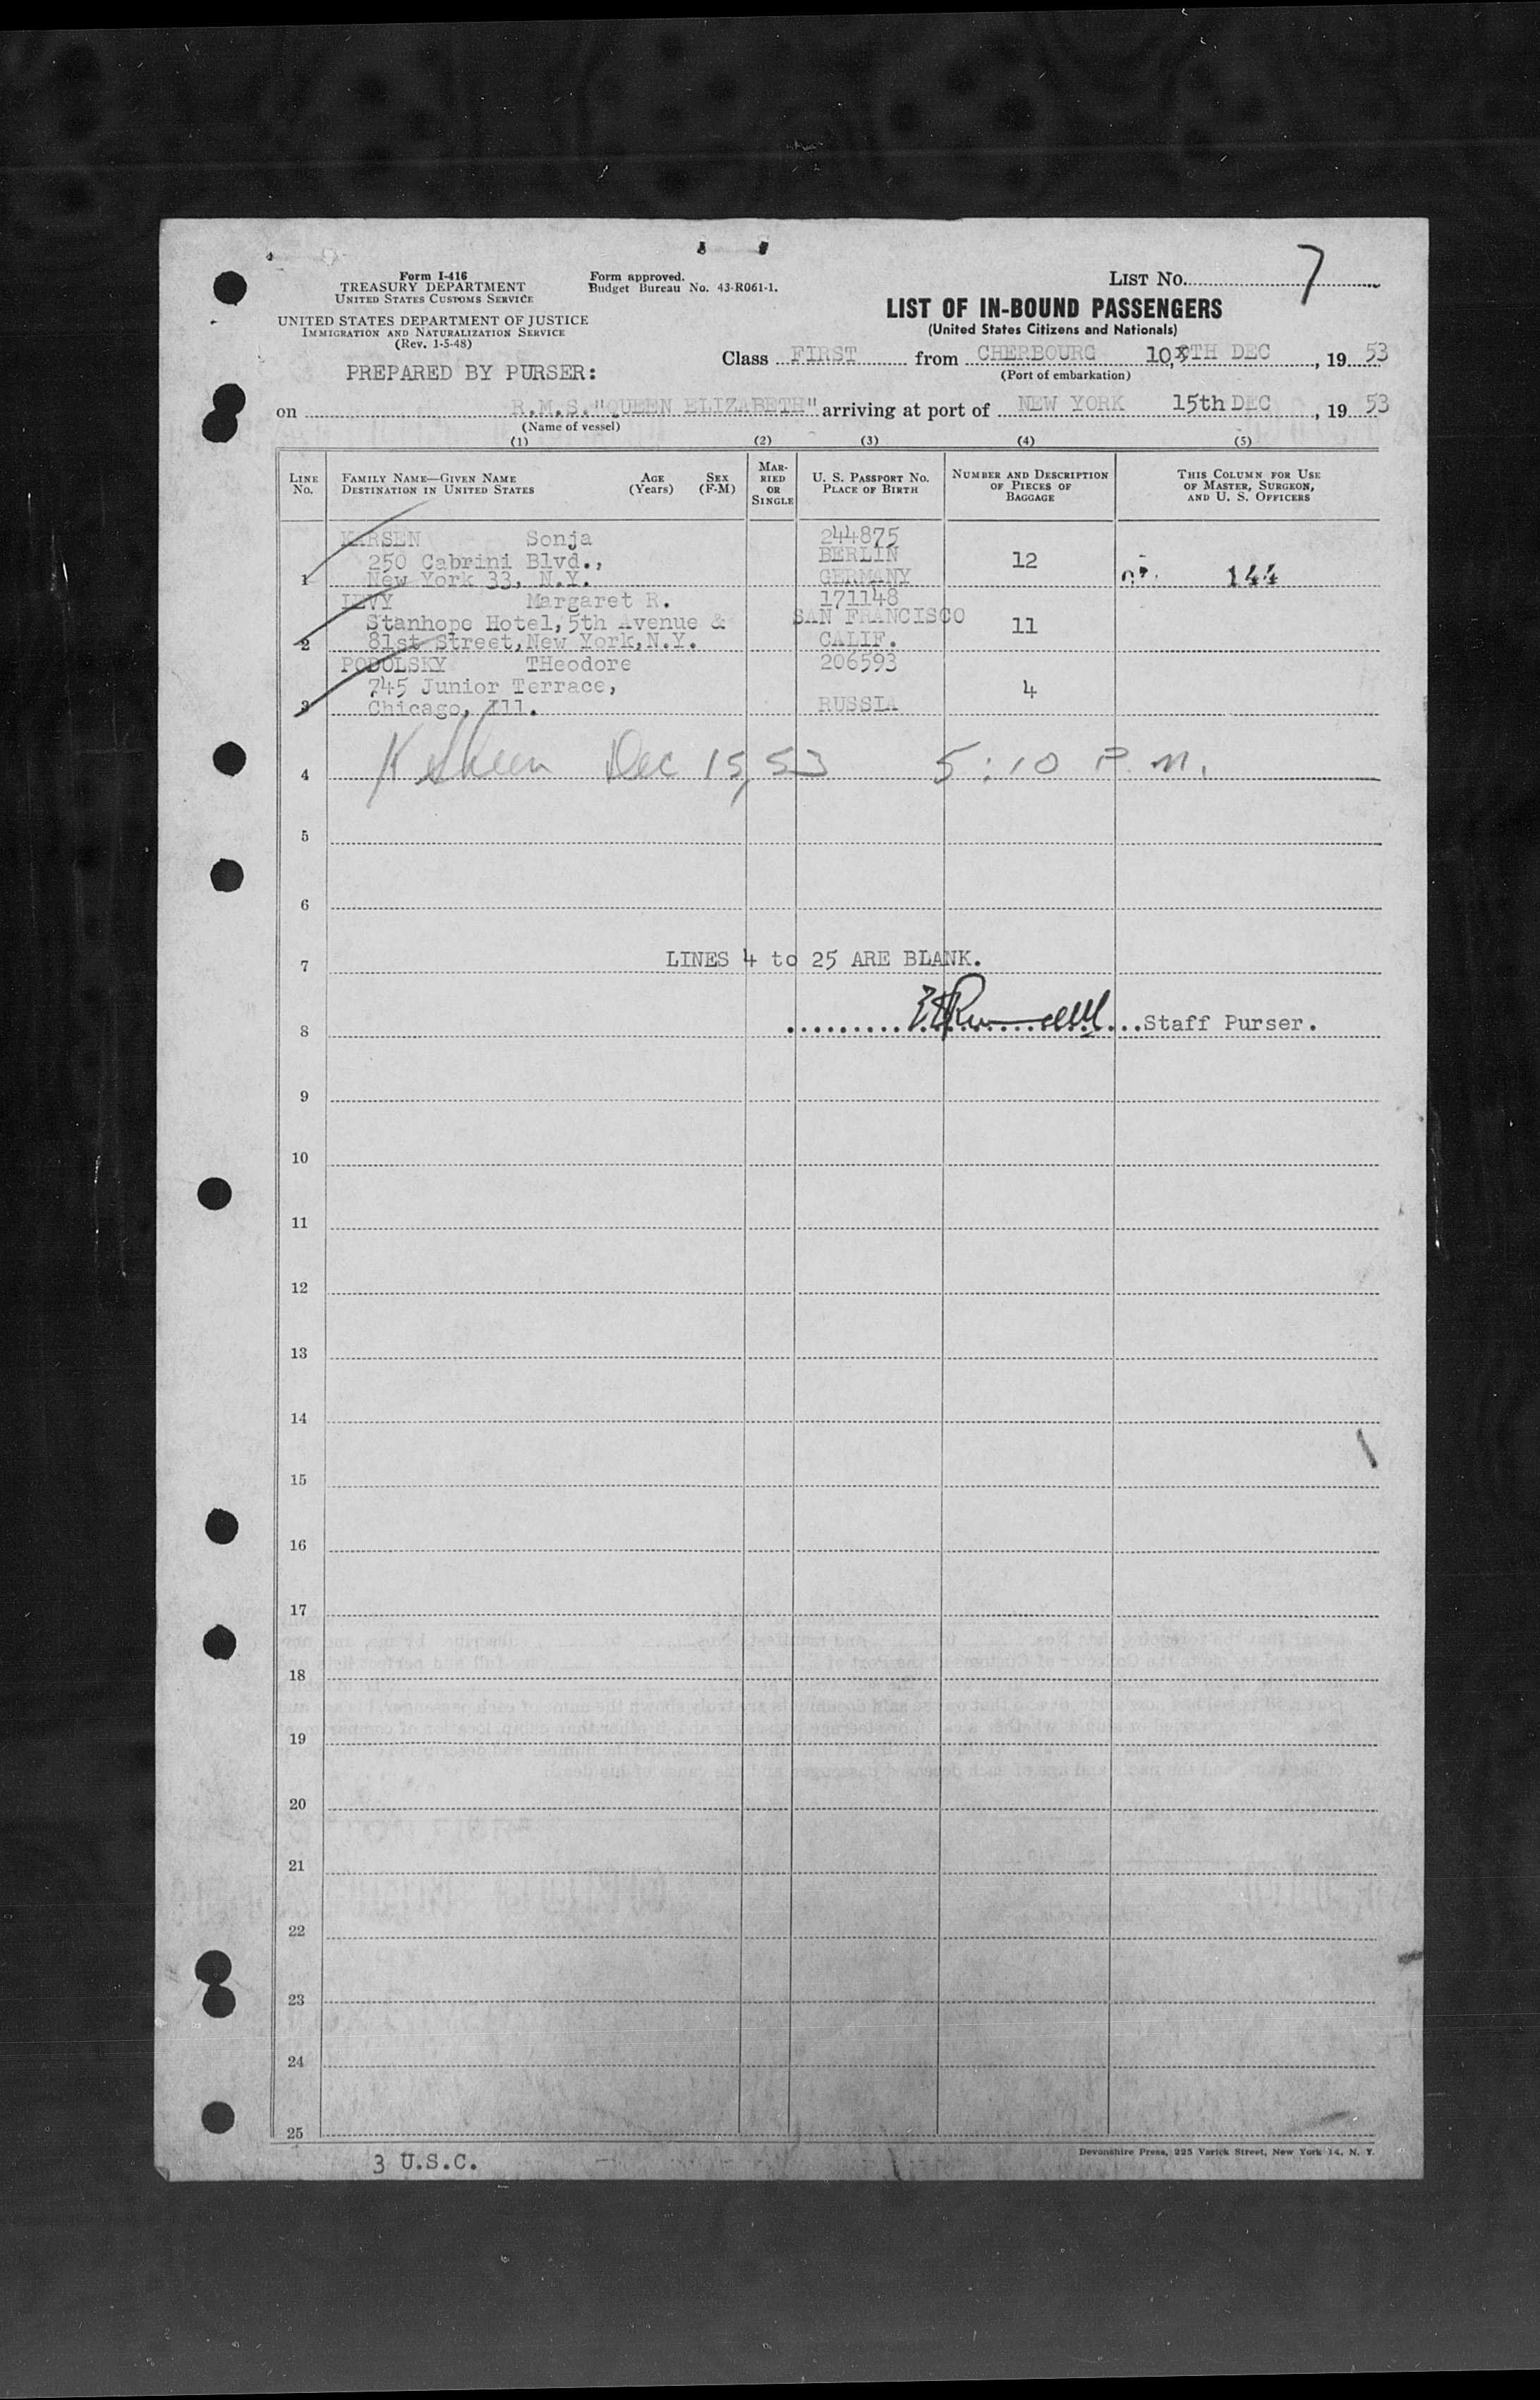 Form I-416
TREASURY DEPARTMENT
UNITED STATES CUSTOMS SERVICE
UNITED STATES DEPARTMENT OF JUSTICE
IMMIGRATION AND NATURALIZATION SERVICE
(Rev. 1-5-48)
PREPARED BY PURSER:
Form approved.
Budget Bureau No. 43-R061-1.
LIST No. 7
LIST OF IN-BOUND PASSENGERS
(United States Citizens and Nationals)
Class FIRST from CHERBOURG 10,TH DEC, 19 53
(Port of embarkation)
on R.M.S."QUEEN ELIZABETH" arriving at port of NEW YORK 15th DEC, 19 53
(Name of vessel)
(1) (2) (3) (4) (5)
LINE No.
FAMILY NAME—GIVEN NAME
DESTINATION IN UNITED STATES
AGE (Years)
SEX (F-M)
MARRIED OR SINGLE
U. S. PASSPORT No.
PLACE OF BIRTH
NUMBER AND DESCRIPTION
OF PIECES OF
BAGGAGE
THIS COLUMN FOR USE
OF MASTER, SURGEON,
AND U. S. OFFICERS
KARSEN Sonja 244875
250 Cabrini Blvd., BERLIN 12
1 New York 33, N.Y. GERMANY 144
LEVY Margaret R. 171148
Stanhope Hotel, 5th Avenue & SAN FRANCISCO 11
2 81st Street, New York, N.Y. CALIF.
PODOLSKY THeodore 206593
745 Junior Terrace, 4
3 Chicago, Ill. RUSSIA
4 Dec 15, 53 5:10 P.M.
5
6
7 LINES 4 to 25 ARE BLANK.
8 Staff Purser.
9
10
11
12
13
14
15
16
17
18
19
20
21
22
23
24
25
3 U.S.C.
Devonshire Press, 225 Varick Street, New York 14, N. Y.